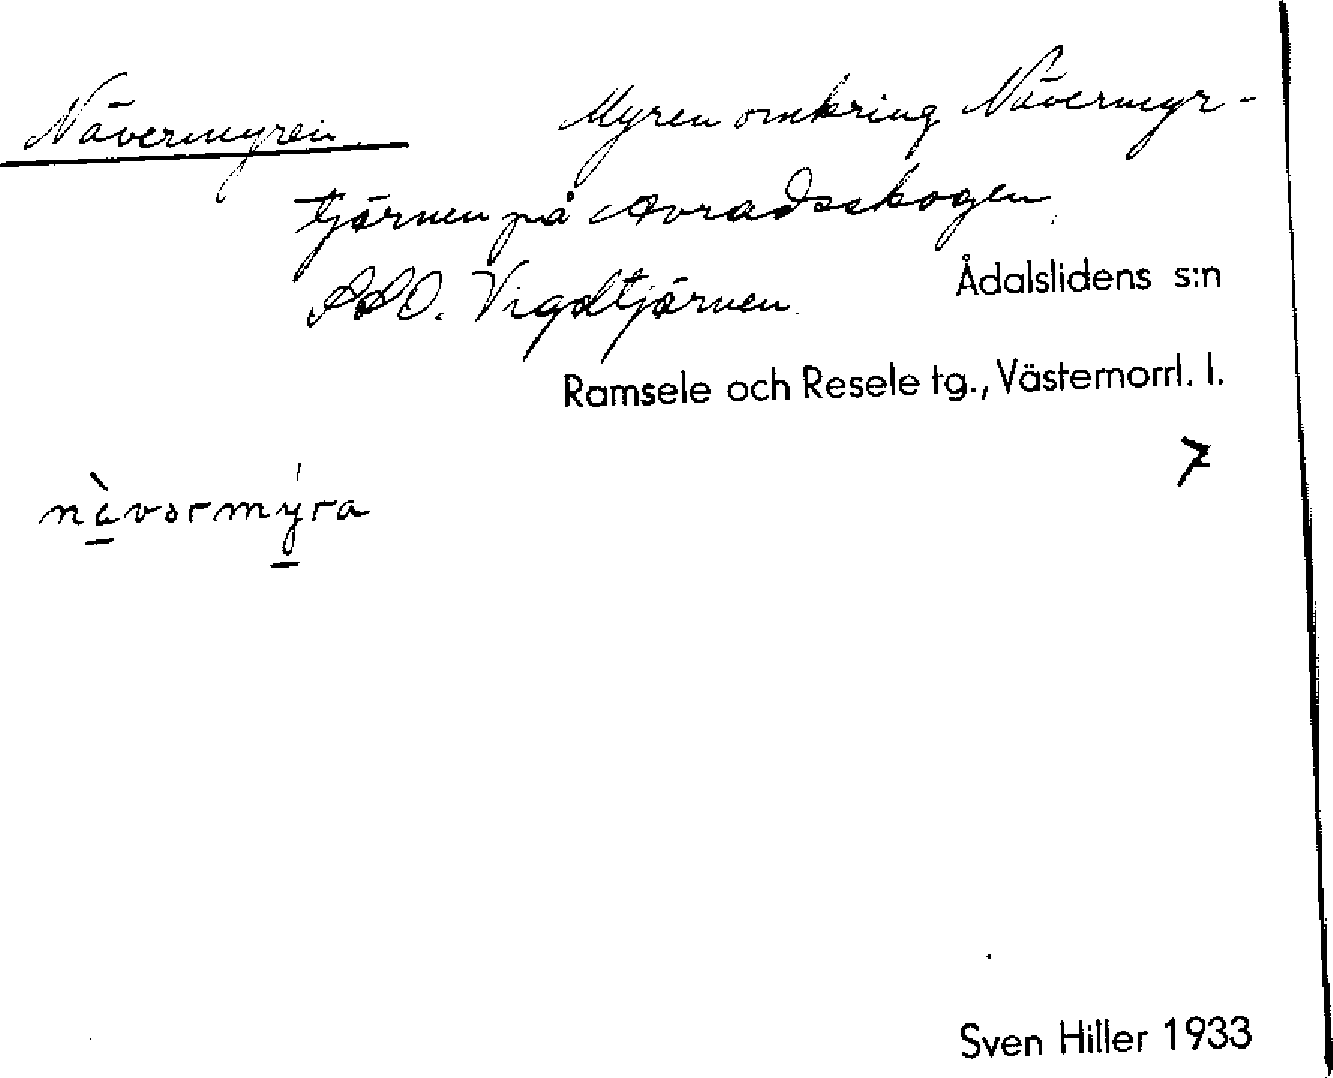 Nävermyren. Myren omkring Nävermyr-
tjärnen på Avradsskogen.
SSO. Vigdtjärnen.
Ådalslidens s:n
Ramsele och Resele tg., Västernorrl. l.
7
nä̀vərmýra
Sven Hiller 1933